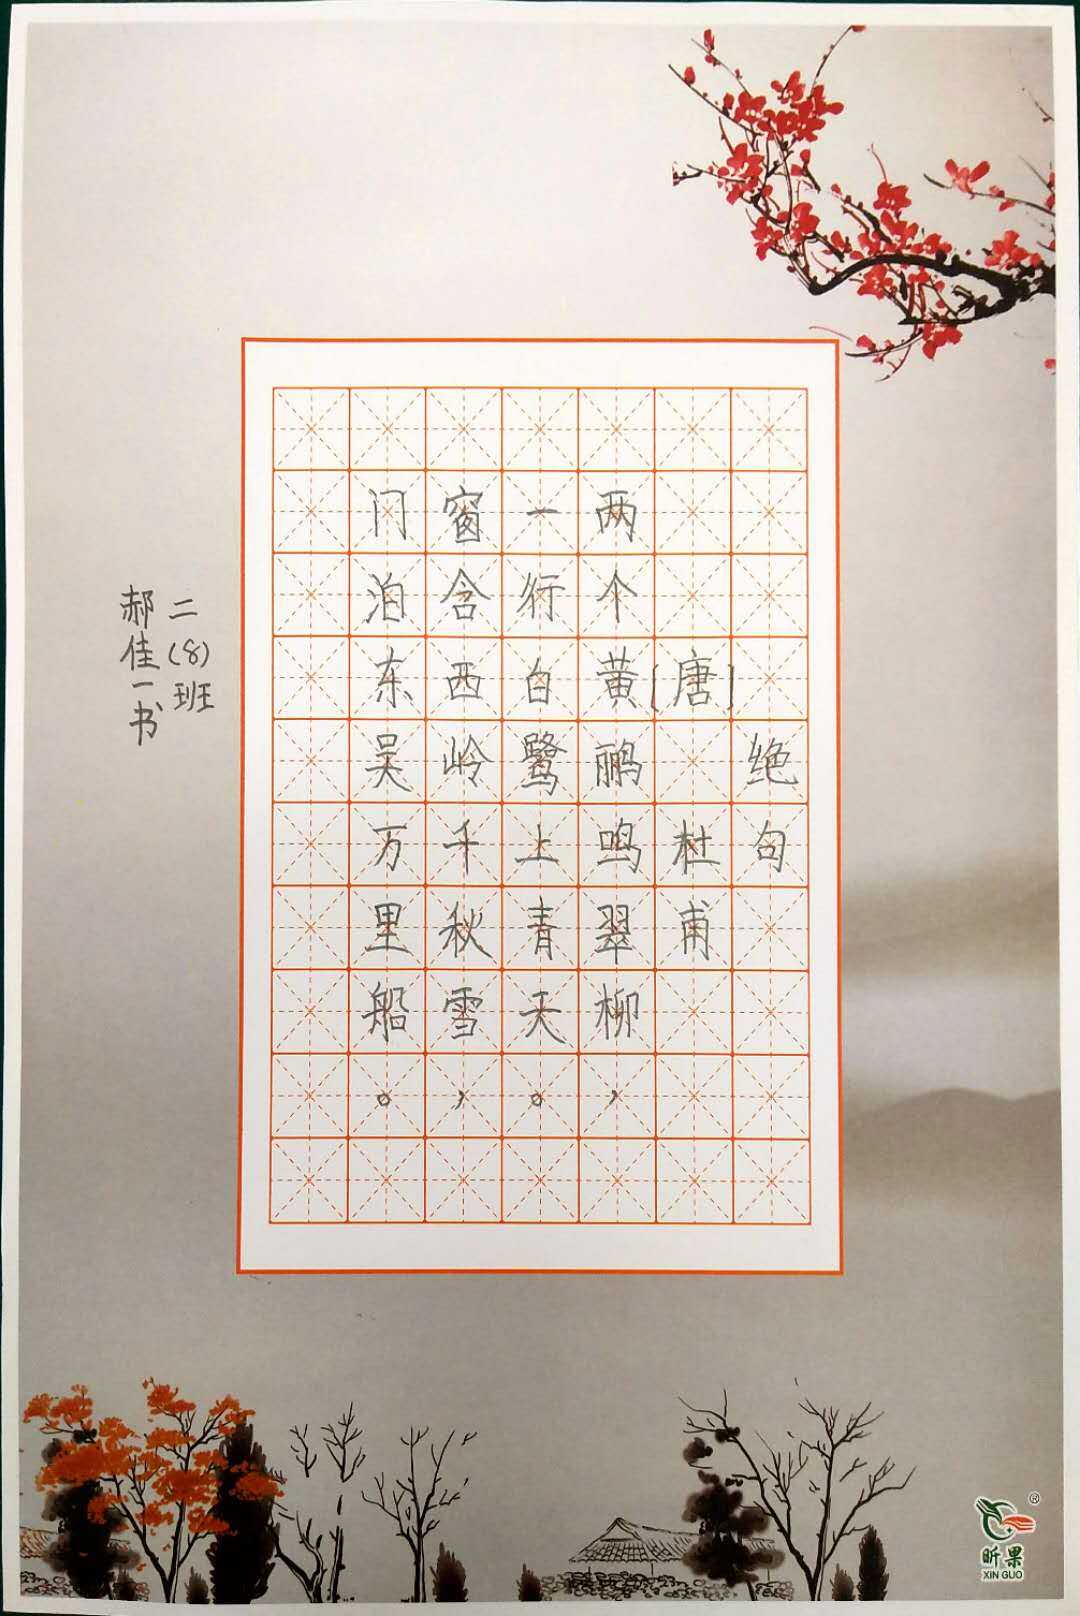 绝句
[唐]杜甫
两个黄鹂鸣翠柳，
一行白鹭上青天。
窗含西岭千秋雪，
门泊东吴万里船。
二(8)班
郝佳一书
昕果
XIN GUO
®